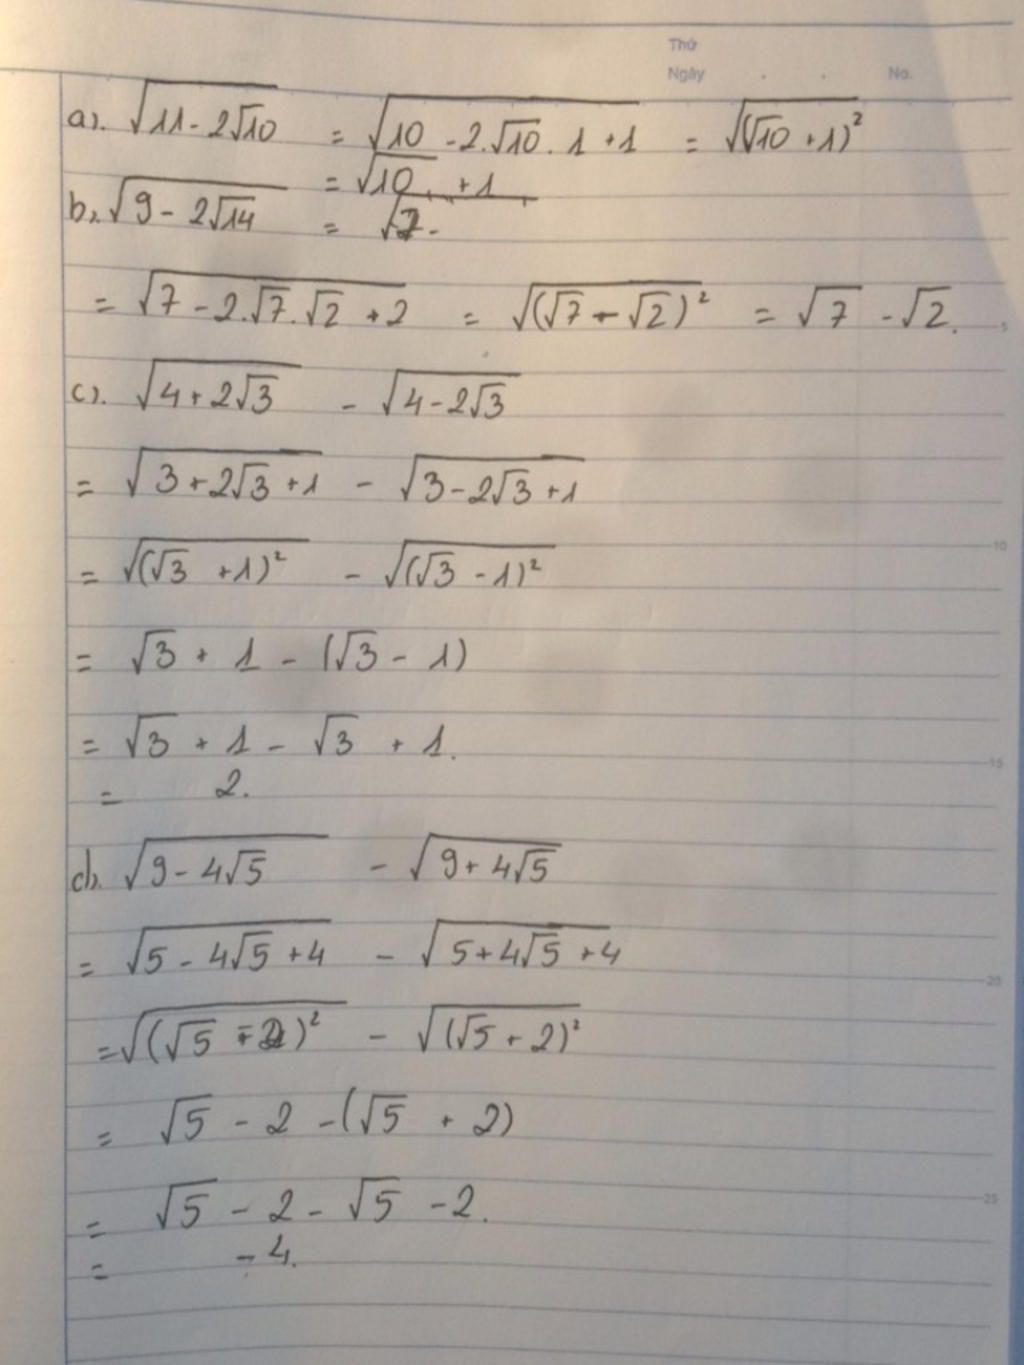 Thứ
Ngày . . No.
a). √(11 - 2√10) = √(10 - 2.√10. 1 + 1) = √((√10 + 1)²)
= √10 + 1
b). √(9 - 2√14) =
= √(7 - 2.√7.√2 + 2) = √((√7 - √2)²) = √7 - √2.
5
c). √(4 + 2√3) - √(4 - 2√3)
= √(3 + 2√3 + 1) - √(3 - 2√3 + 1)
= √((√3 + 1)²) - √((√3 - 1)²)
10
= √3 + 1 - (√3 - 1)
= √3 + 1 - √3 + 1.
15
= 2.
d). √(9 - 4√5) - √(9 + 4√5)
= √(5 - 4√5 + 4) - √(5 + 4√5 + 4)
20
= √((√5 - 2)²) - √((√5 + 2)²)
= √5 - 2 - (√5 + 2)
= √5 - 2 - √5 - 2.
25
= - 4.